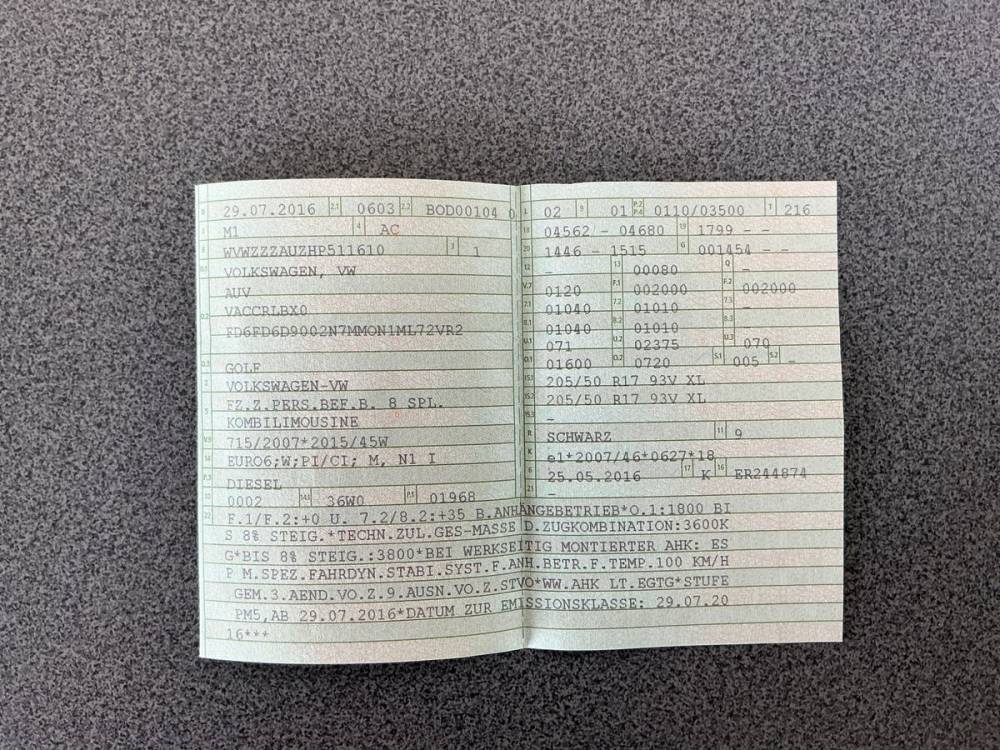 B 29.07.2016 2.1 0603 2.2 BOD00104 0
J M1 4 AC
E WVWZZZAUZHP511610 3 1
D.1 VOLKSWAGEN, VW
AUV
D.2 VACCRLBX0
FD6FD6D9002N7MMON1ML72VR2
D.3 GOLF
2 VOLKSWAGEN-VW
5 FZ.Z.PERS.BEF.B. 8 SPL.
KOMBILIMOUSINE
V.9 715/2007*2015/45W
14 EURO6;W;PI/CI; M, N1 I
P.3 DIESEL
10 0002 14.1 36W0 P.1 01968
L 02 9 01 P.2 P.4 0110/03500 T 216
18 04562 - 04680 19 1799 - -
20 1446 - 1515 G 001454 - -
12 - 13 00080 Q -
V.7 0120 F.1 002000 F.2 002000
7.1 01040 7.2 01010 7.3 -
8.1 01040 8.2 01010 8.3 -
U.1 071 U.2 02375 U.3 070
O.1 01600 O.2 0720 S.1 005 S.2 -
15.1 205/50 R17 93V XL
15.2 205/50 R17 93V XL
15.3 -
R SCHWARZ 11 9
K e1*2007/46*0627*18
6 25.05.2016 17 K 16 ER244874
21 -
22 F.1/F.2:+0 U. 7.2/8.2:+35 B.ANHÄNGEBETRIEB*O.1:1800 BI
S 8% STEIG.*TECHN.ZUL.GES-MASSE D.ZUGKOMBINATION:3600K
G*BIS 8% STEIG.:3800*BEI WERKSEITIG MONTIERTER AHK: ES
P M.SPEZ.FAHRDYN.STABI.SYST.F.ANH.BETR.F.TEMP.100 KM/H
GEM.3.AEND.VO.Z.9.AUSN.VO.Z.STVO*WW.AHK LT.EGTG*STUFE
PM5,AB 29.07.2016*DATUM ZUR EMISSIONSKLASSE: 29.07.20
16***